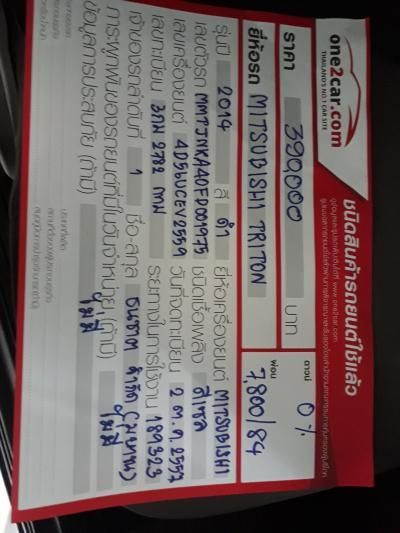 one2car.com
THAILAND'S NO.1 CAR SITE
ชนิดสินค้ารถยนต์ใช้แล้ว
ราคา 390,000 บาท
ดาวน์ 0%
ยี่ห้อรถ MITSUBISHI TRITON
ผ่อน 7,800/84
รุ่นปี 2014 สี ดำ ยี่ห้อเครื่องยนต์ MITSUBISHI
เลขตัวรถ MMTJNKA40ED001975 ชนิดเชื้อเพลิง ดีเซล
เลขเครื่องยนต์ 4D56UCEV2559 วันที่จดทะเบียน 2 ต.ค. 2557
เลขทะเบียน 3กม 2782 กทม ระยะทางในการใช้งาน 189,323
เจ้าของรถลำดับที่ 1 ชื่อ-สกุล
การผูกพันของรถยนต์ที่มีในวันจำหน่าย (ถ้ามี) ไม่มี
ข้อมูลการประสบภัย (ถ้ามี) ไม่มี